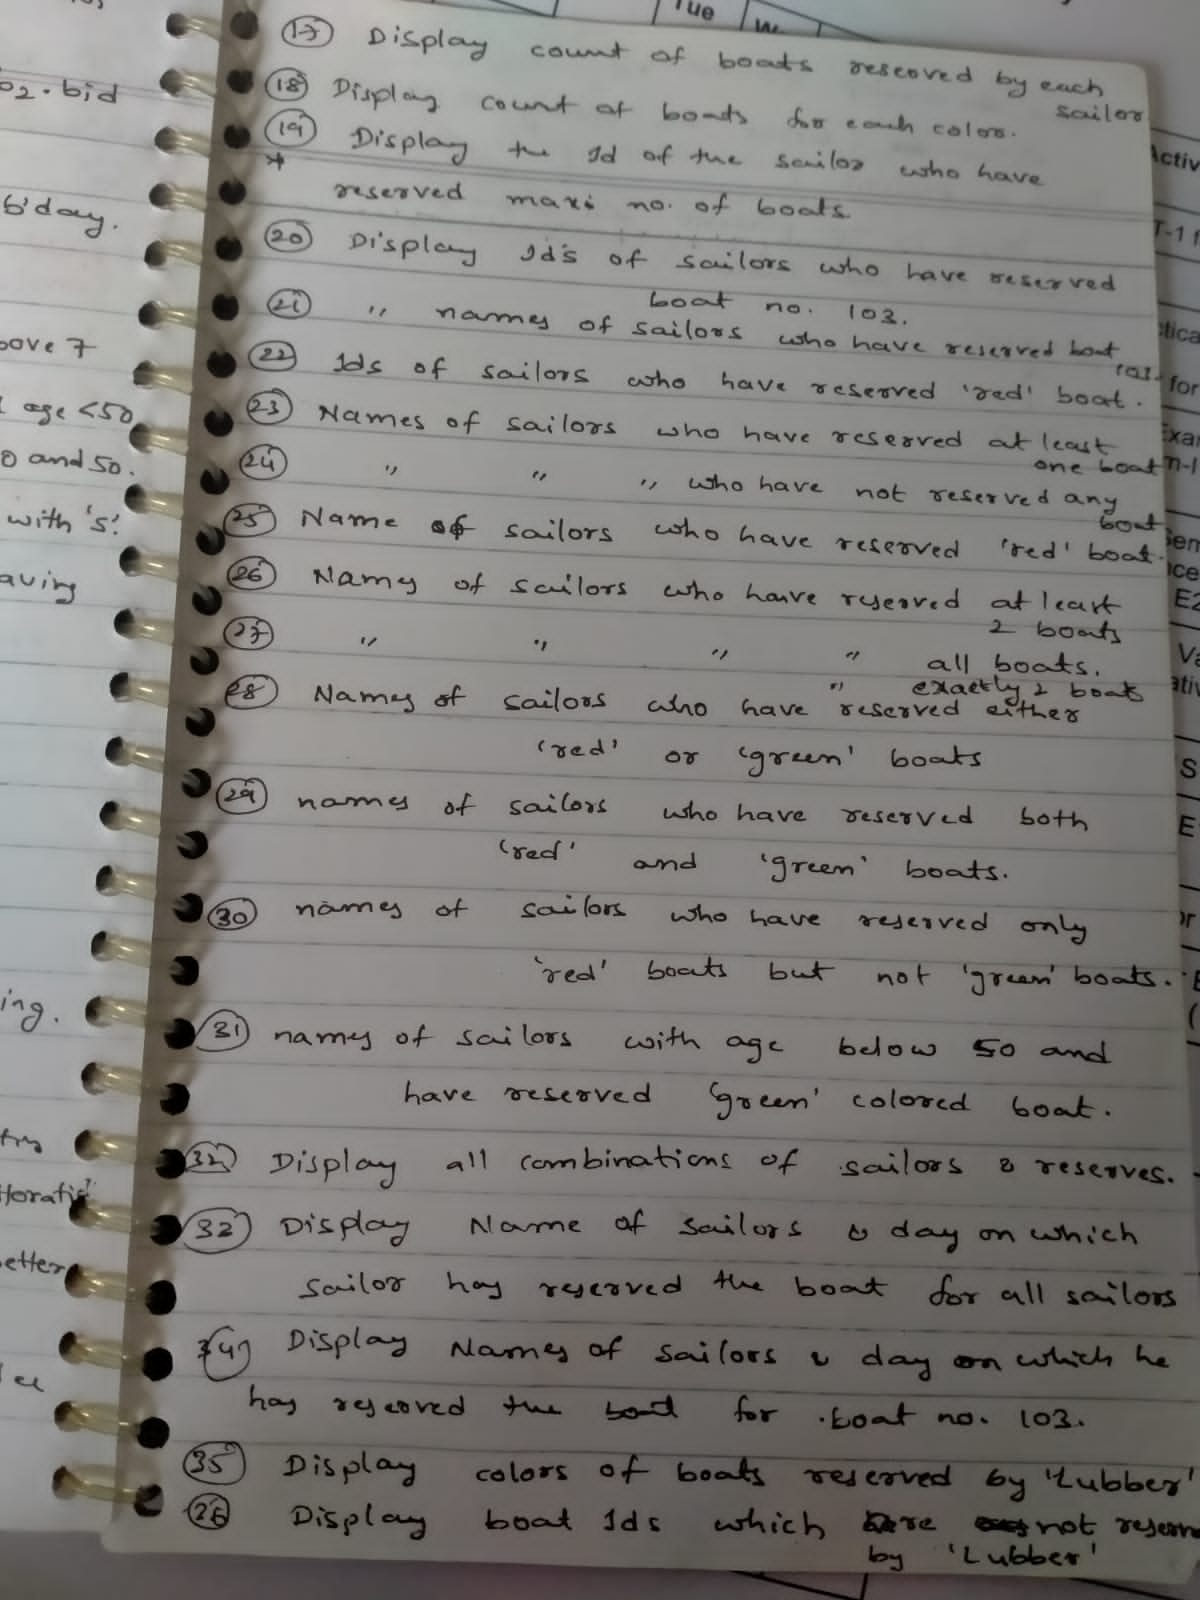 Tue W
17 Display count of boats reserved by each
sailor
18 Display count of boats for each color.
19 Display the Id of the sailor who have
*
reserved maxi no. of boats.
20 Display Id's of sailors who have reserved
boat no. 103.
21 " names of sailors who have reserved boat
103.
22 Ids of sailors who have reserved 'red' boat.
23 Names of sailors who have reserved at least
one boat
24 " " " who have not reserved any
boat
25 Name of sailors who have reserved 'red' boat.
26 Names of sailors who have reserved at least
2 boats
27 " " " " all boats.
" exactly 2 boats
28 Names of sailors who have reserved either
'red' or 'green' boats
29 names of sailors who have reserved both
'red' and 'green' boats.
30 names of sailors who have reserved only
'red' boats but not 'green' boats.
31 names of sailors with age below 50 and
have reserved 'green' colored boat.
32 Display all combinations of sailors & reserves.
33 Display Name of sailors & day on which
sailor has reserved the boat for all sailors
34 Display Names of sailors & day on which he
has reserved the boat for boat no. 103.
35 Display colors of boats reserved by 'Lubber'
36 Display boat Ids which are not
by 'Lubber'
b2.bid
b'day.
ove 7
age <50
0 and 50.
with 's'.
aving
ing.
etter